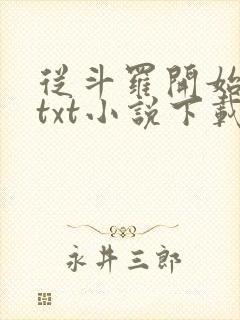 從斗羅開始
txt小說下載
永井三郎